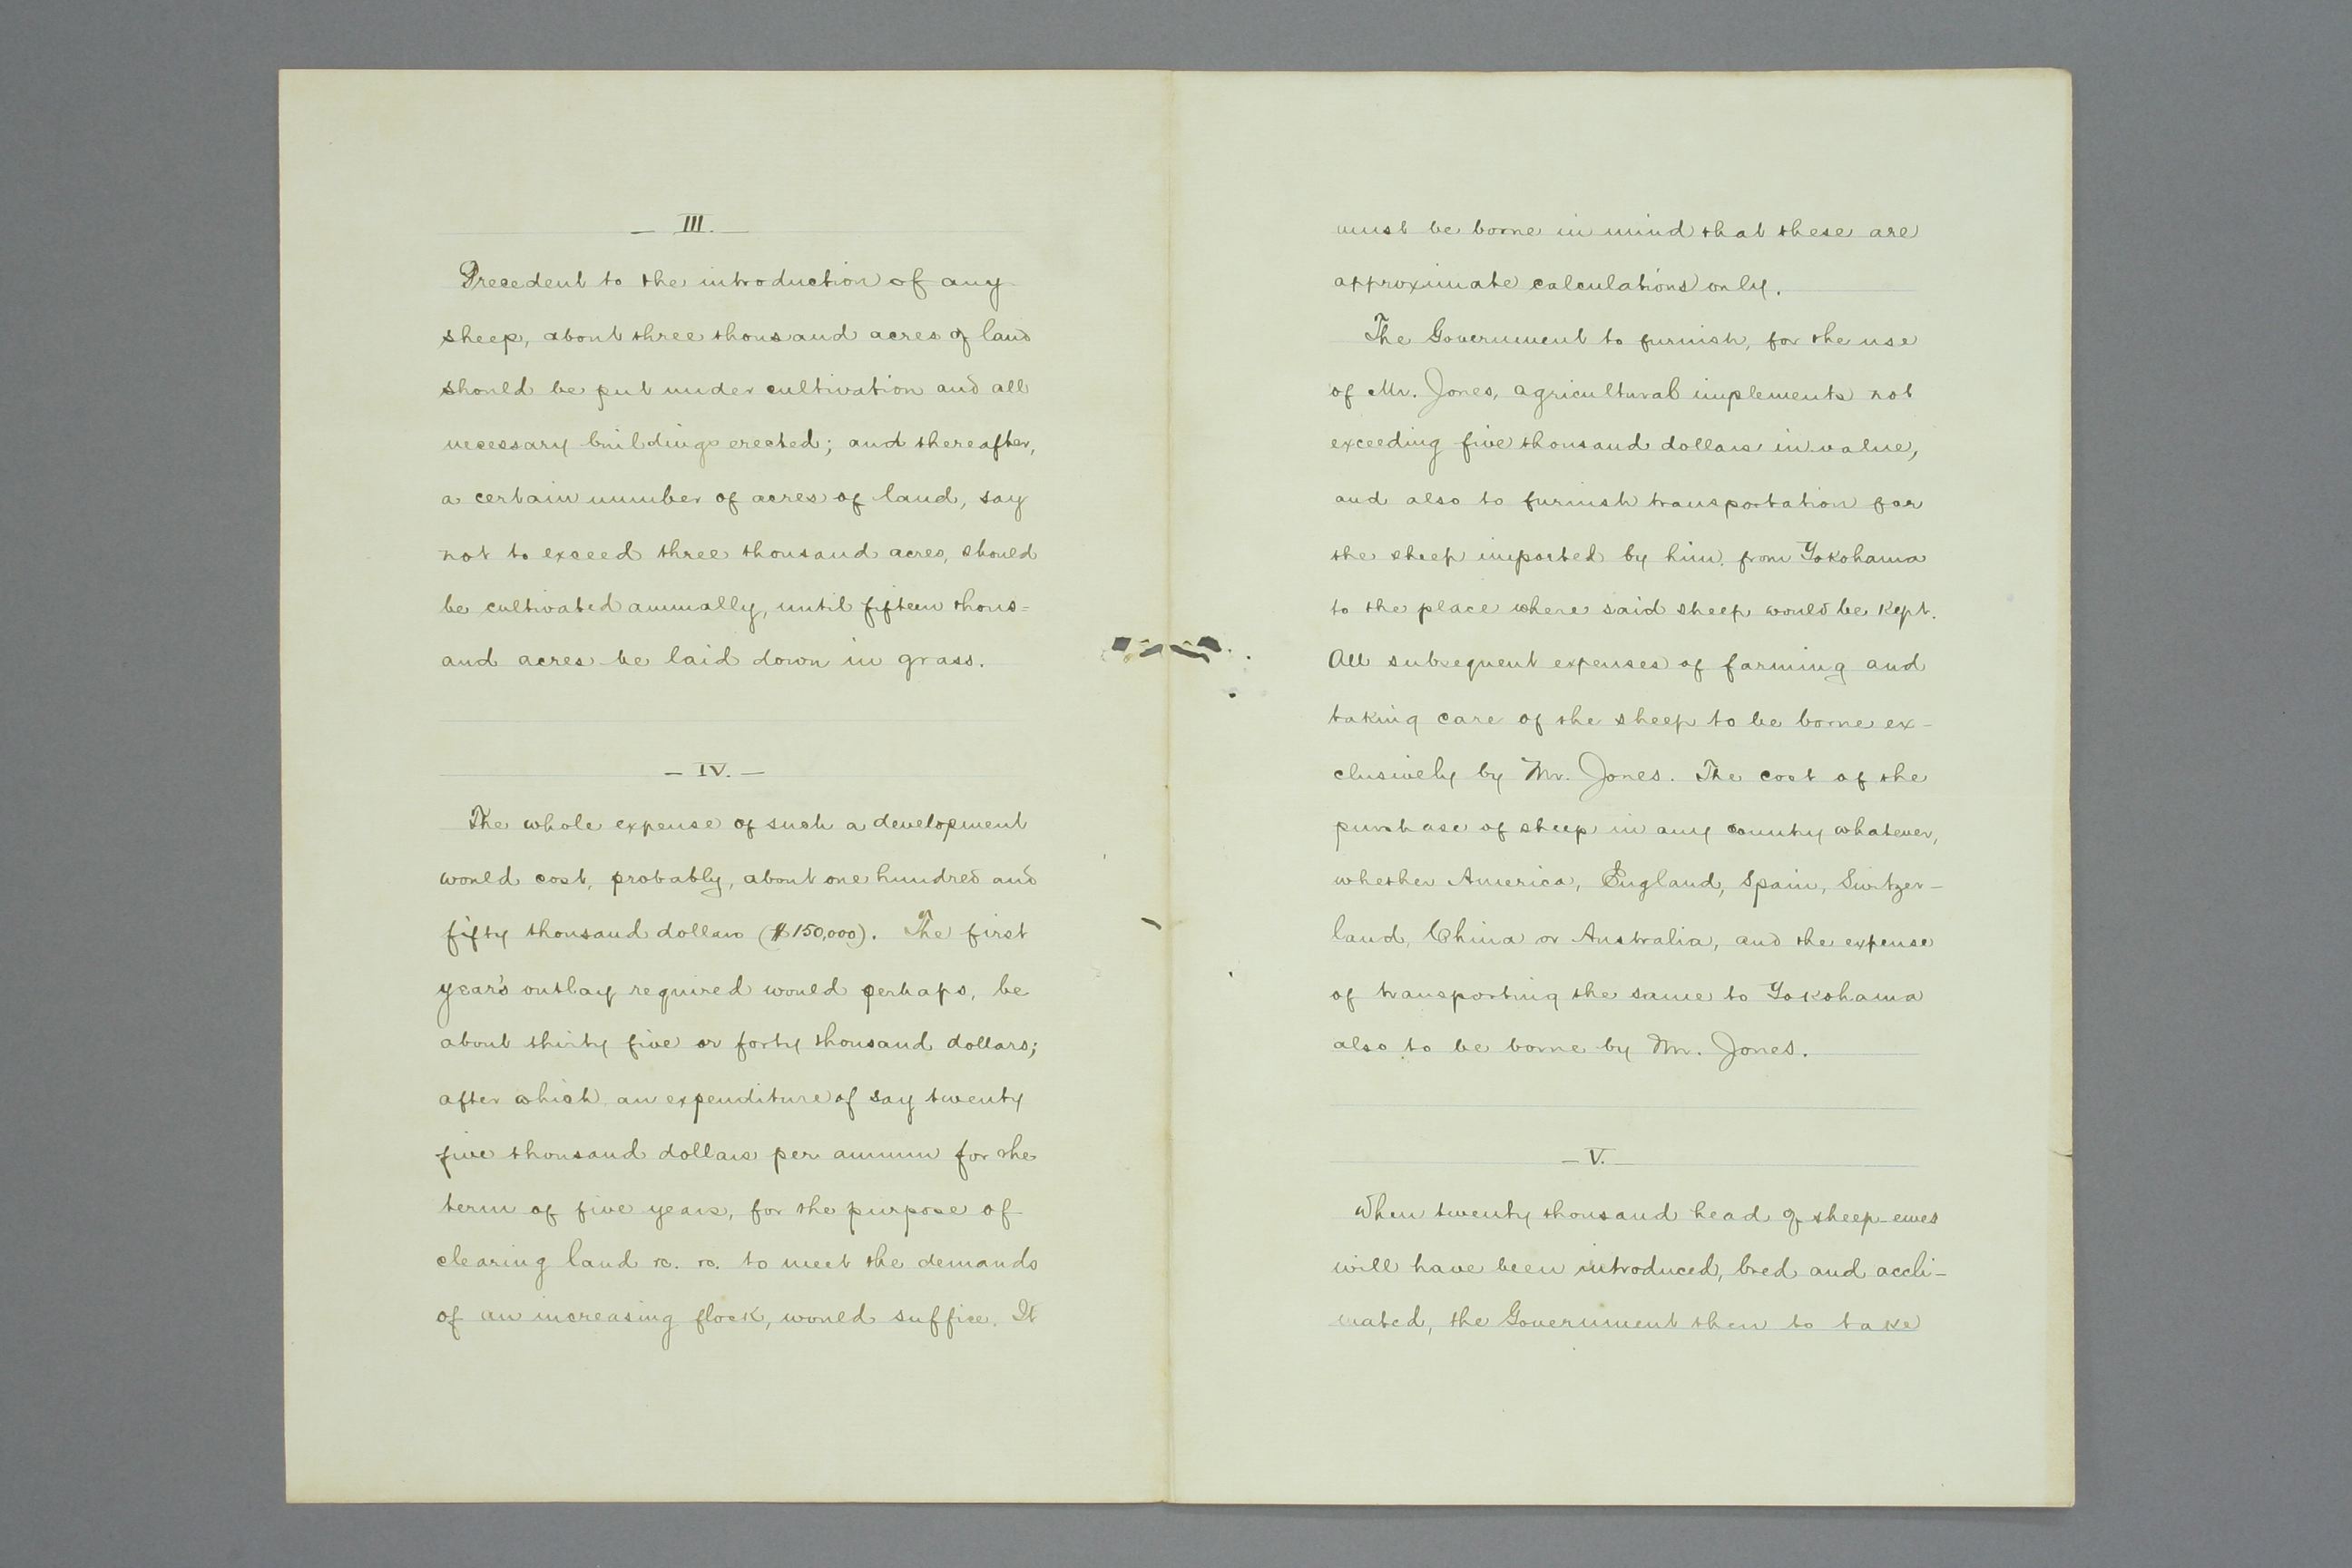 — III. —
Precedent to the introduction of any
sheep, about three thousand acres of land
should be put under cultivation and all
necessary buildings erected; and thereafter,
a certain number of acres of land, say
not to exceed three thousand acres, should
be cultivated annually, until fifteen thous=
and acres be laid down in grass.
— IV. —
The whole expense of such a development
would cost, probably, about one hundred and
fifty thousand dollars ($150,000). The first
year's outlay required would perhaps, be
about thirty five or forty thousand dollars;
after which an expenditure of say twenty
five thousand dollars per annum for the
term of five years, for the purpose of
clearing land &c. &c. to meet the demands
of an increasing flock, would suffice. It
must be borne in mind that these are
approximate calculations only.
The Government to furnish, for the use
of Mr. Jones, agricultural implements not
exceeding five thousand dollars in value,
and also to furnish transportation for
the sheep imported by him, from Yokohama
to the place where said sheep would be kept.
All subsequent expenses of farming and
taking care of the sheep to be borne ex-
clusively by Mr. Jones. The cost of the
purchase of sheep in any country whatever,
whether America, England, Spain, Switzer-
land, China or Australia, and the expense
of transporting the same to Yokohama
also to be borne by Mr. Jones.
— V. —
When twenty thousand head of sheep-ewes
will have been introduced, bred and accli-
mated, the Government then to take